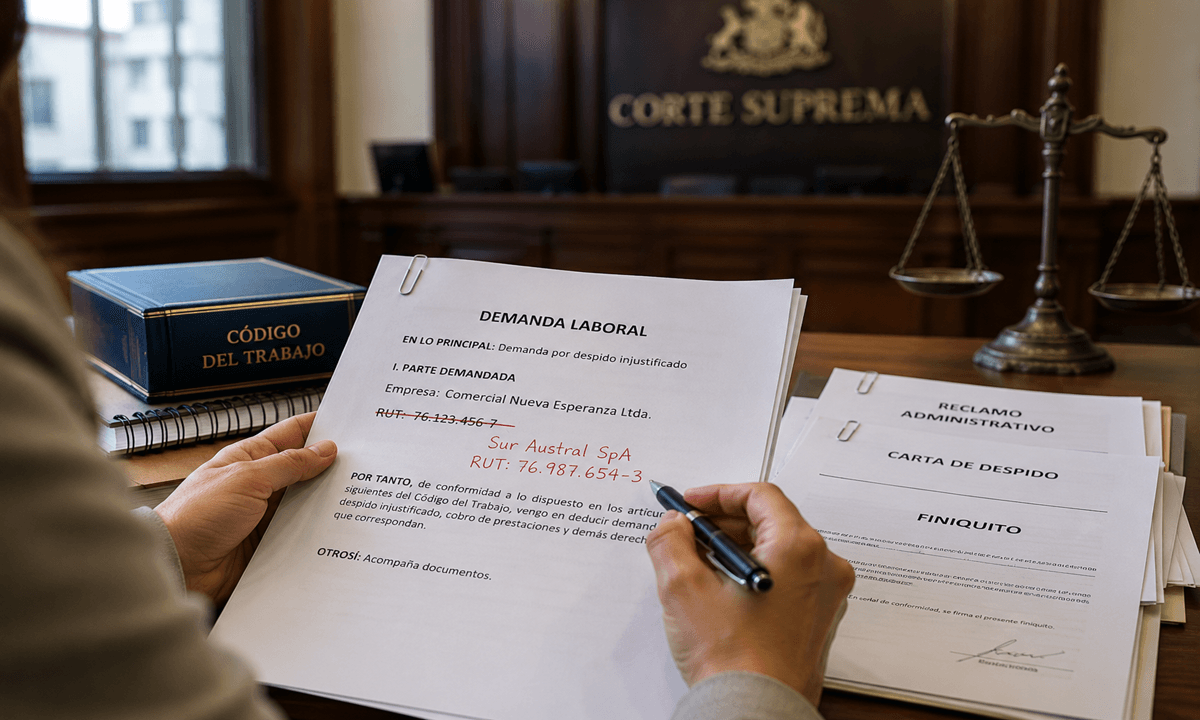 CORTE SUPREMA
CÓDIGO
DEL TRABAJO
DEMANDA LABORAL
EN LO PRINCIPAL: Demanda por despido injustificado
I. PARTE DEMANDADA
Empresa: Comercial Nueva Esperanza Ltda.
RUT: 76.123.456-7
Sur Austral SpA
RUT: 76.987.654-3
POR TANTO, de conformidad a lo dispuesto en los
siguientes del Código del Trabajo, vengo en deducir
despido injustificado, cobro de prestaciones y demás
que correspondan.
OTROSÍ: Acompaña documentos.
RECLAMO
ADMINISTRATIVO
CARTA DE DESPIDO
FINIQUITO
En señal de conformidad, se firma el presente finiquito.